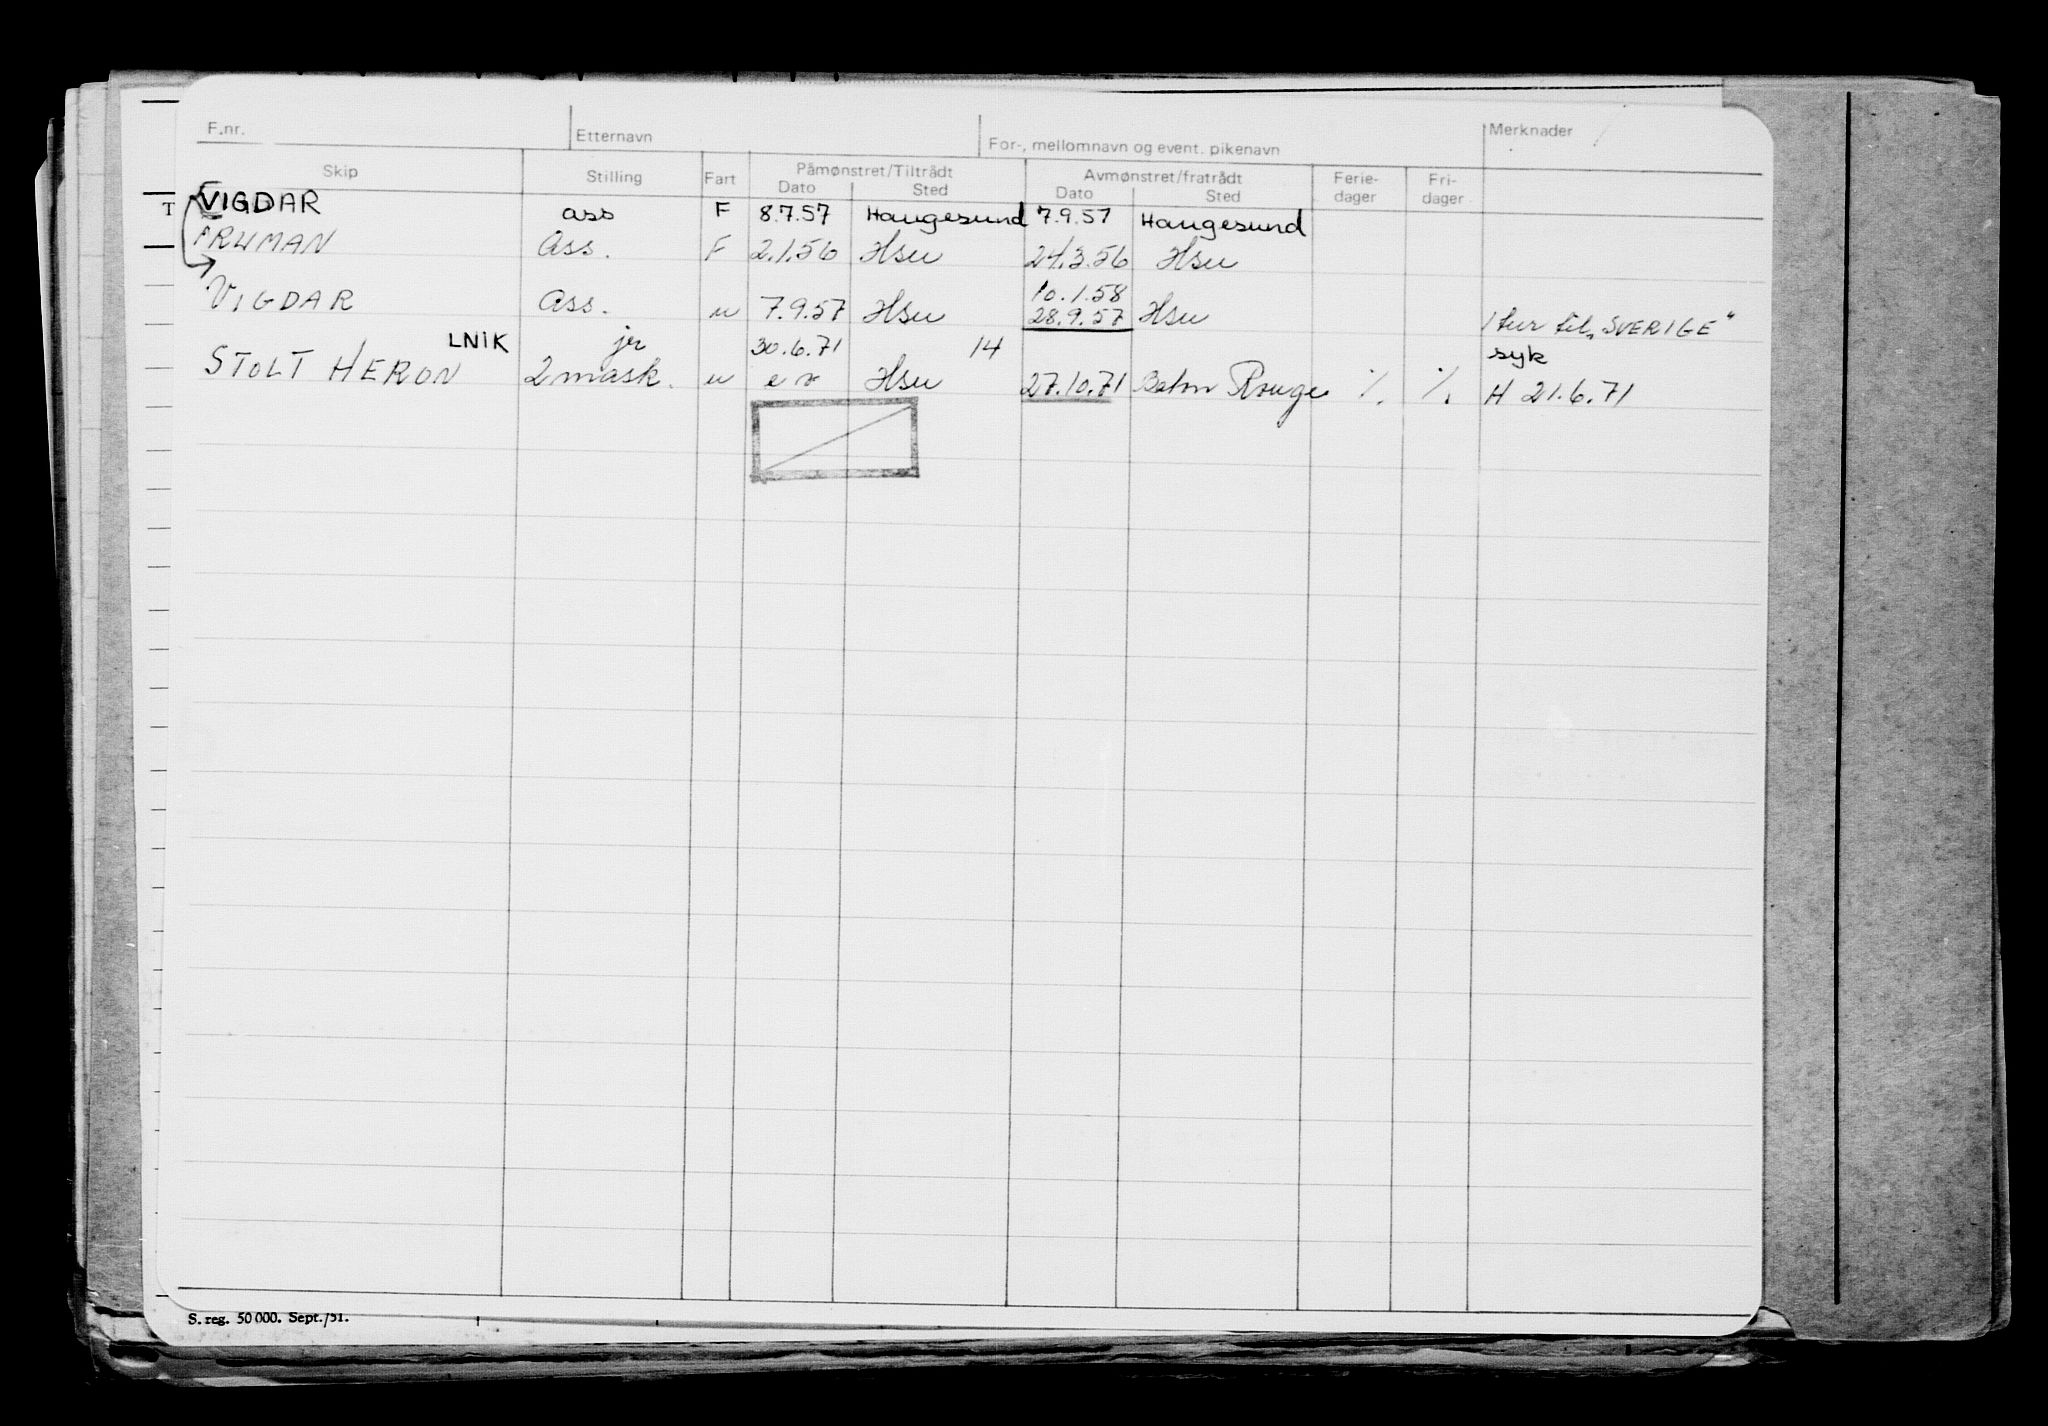 F.nr. Etternavn For-, mellomnavn og event. pikenavn Merknader
Skip Stilling Fart Påmønstret/Tiltrådt Avmønstret/fratrådt Ferie- Fri-
Dato Sted Dato Sted dager dager
T VIGDAR ass F 8.7.57 Haugesund 7.9.57 Haugesund
Ass. F 2.1.56 Hsu 24.3.56 Hsu
10.1.58
VIGDAR Ass. u 7.9.57 Hsu 28.9.57 Hsu 1 tur til „SVERIGE"
LNIK jr 30.6.71 14 syk
STOLT HERON 2 mask. u e r Hsu 27.10.71 Baton Rouge % % H 21.6.71
S. reg. 50 000. Sept./51.